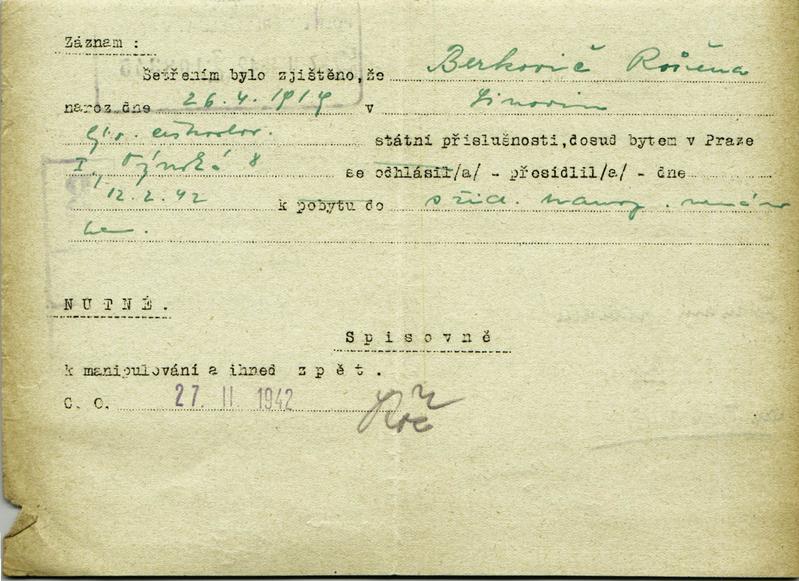 Záznam :
Šetřením bylo zjištěno, že Berkovič Růžena
naroz. dne 26. 4. 1919 v
státní příslušnosti, dosud bytem v Praze
I, Týnská 8 se odhlásil/a/ - přesídlil/a/ - dne
12. 2. 42 k pobytu do
NUTNÉ.
Spisovně
k manipulování a ihned zpět.
C. O. 27. II. 1942